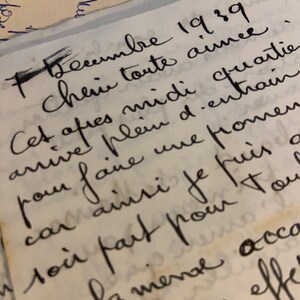 7 Decembre 1939
Cherie toute aimée.
Cet apres midi quartier
arrive plein d'entrain
pour faire une promen
car ainsi je puis
soir part pour Toul
la mense acco
effe